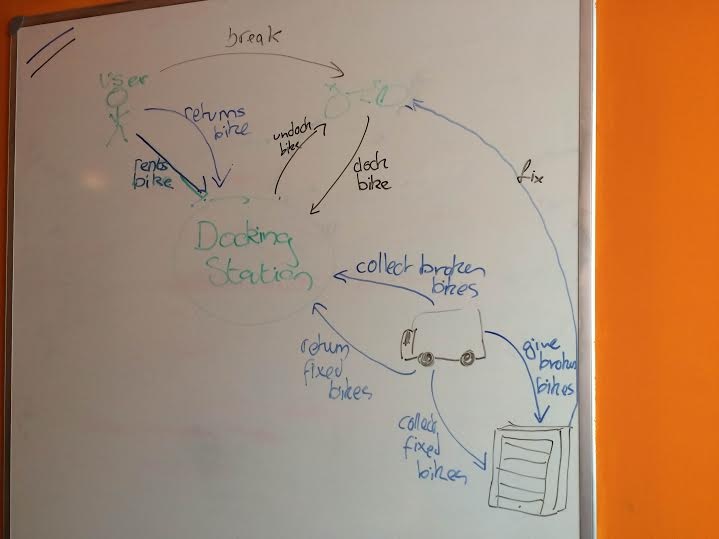 break
user
returns
bike
undock
bike
rents
bike
dock
bike
fix
Docking
Station
collect broken
bikes
return
fixed
bikes
give
broken
bikes
collect
fixed
bikes